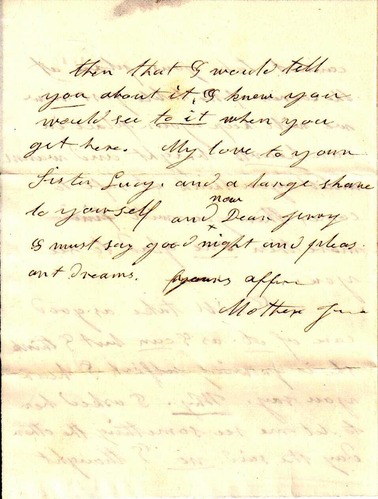 then that I would tell
you about it, I knew you
would see to it when you
get here. My love to your
Sister Lucy, and a large share
to yourself and now Dear
I must say good night and pleas
ant dreams. yours affec
Mother